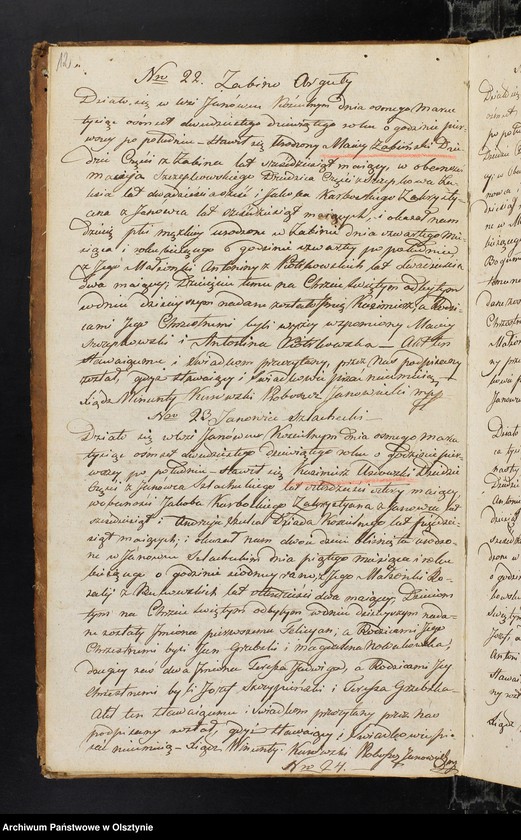 12.
Nro 22. Żabino Arguły
Działo się w wsi Janowcu Kościelnym dnia osmego Marca
tysiąc osmset dwudziestego dziewiątego roku o godzinie pier-
wszy po południu – stawił się Urodzony Maciy Żabiński Dzie-
dzic Części z Żabina lat sześdziesiąt maiący, w obecności
Macieja Dziedzica Części
lat dwadzieścia i Jakuba Karboskiego Zakrysty-
ana z Janowca lat sześdziesiąt maiących, i okazał nam
dziecię płci męzkiej urodzone w Żabinie dnia czwartego Mie-
siąca i roku bieżącego o godzinie czwarty po południu
z Jego Małżonki Antoniny z Piotrkowskich lat dwadzieścia
dwa maiący, Dziecięciu temu na Chrzcie świętym odbytym
w dniu dzisieyszym nadane zostało Imię Kazimierz, a Rodzi-
cami Jego Chrzestnemi byli wyżey wspomniony Maciey
i Antonina – Akt ten
stawaiącemu i świadkom przeczytany, przez Nas podpisany
został, gdyż stawaiący i świadkowie pisać nieumieią –
Xiądz Wincenty Kunoski Proboszcz Janowiecki mpp
Nro 23. Janowiec Szlachecki –
Działo się w wsi Janowcu Kościelnym dnia osmego Marca
tysiąc osmset dwudziestego dziewiątego roku o godzinie pier-
wszy po południu – stawił się Kazimierz Dziedzic
Części z Janowca Szlacheckiego lat czterdzieści cztery maiący,
w obecności Jakuba Karboskiego Zakrystyana z Janowca lat
sześdziesiąt i Andrzeja Dziada Kościelnego lat pięćdzie-
siąt maiących; i okazał nam dwoie dzieci bliźnięta urodzo-
ne w Janowcu Szlacheckim dnia piątego miesiąca i roku
bieżącego o godzinie siodmy rano z Jego Małżonki Ro-
zalij z lat czterdzieści dwa maiący; Dzieciom
tym na Chrzcie świętym odbytym w dniu dzisieyszym nada-
ne zostały Imiona pierwszemu Felicyan; a Rodzicami Jego
Chrzestnemi byli Jan Grzebski i Magdalena Nowakowska,
drugiey zaś dwa Imiona Teressa Jadwiga, a Rodzicami Jey
Chrzestnemi byli Józef i Teressa Grzebska –
Akt ten stawaiącemu i świadkom przeczytany przez Nas
podpisany został, gdyż stawaiący i świadkowie pi-
sać nieumieią – Xiądz Wincenty Kunoski Proboszcz Janowiecki mpp
Nro 24. –
Archiwum Państwowe w Olsztynie